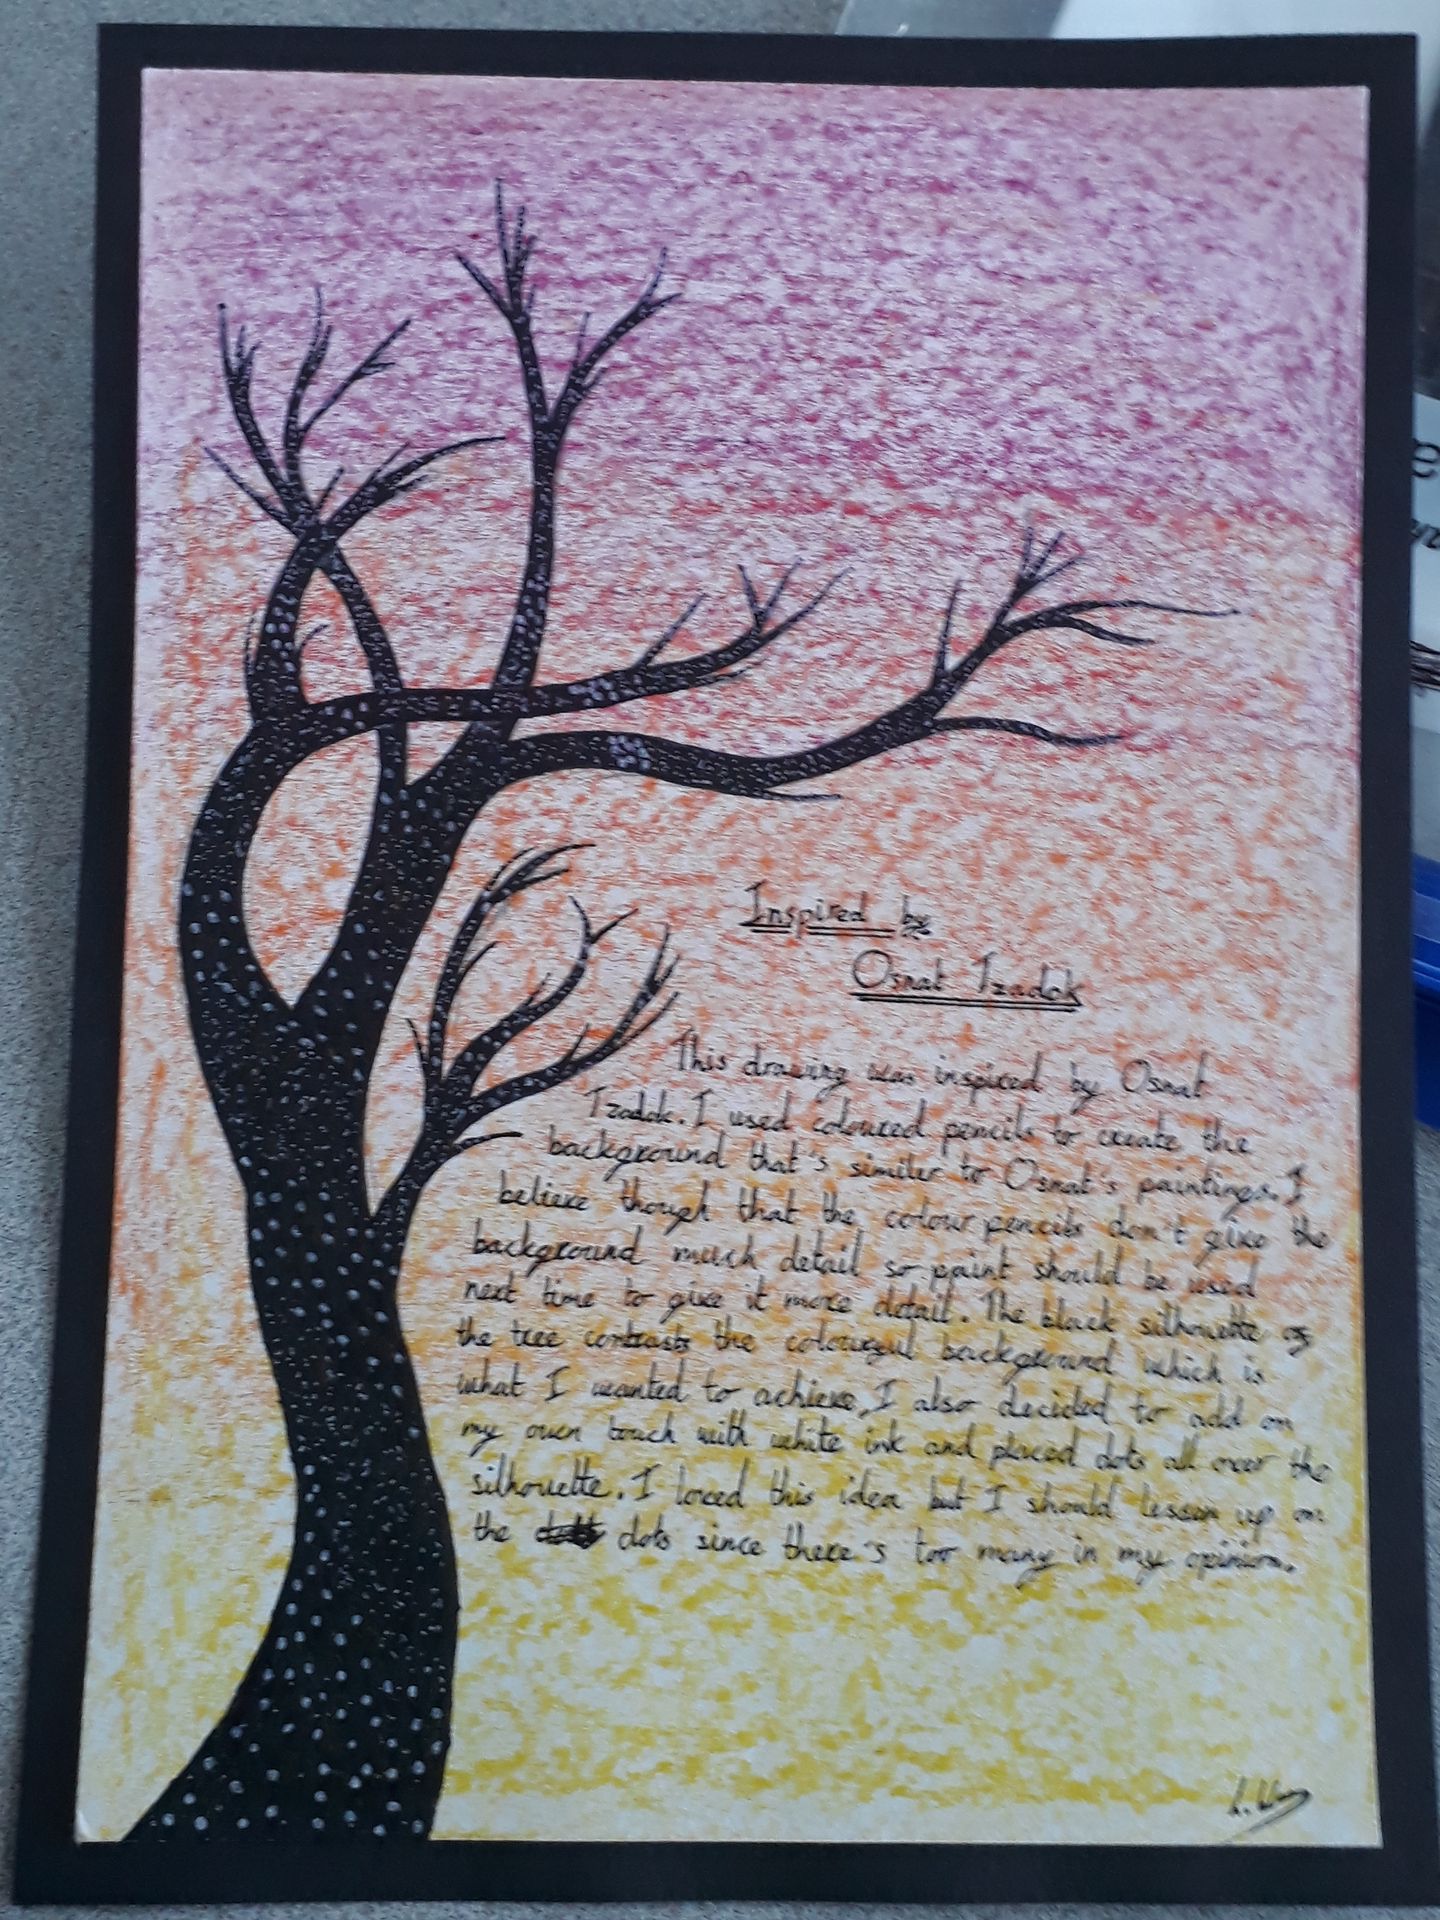 Inspired by
Osnat Tzadok
This drawing was inspired by Osnat
Tzadok. I used coloured pencils to create the
background that's similer to Osnat's paintings. I
believe though that the colour pencils don't give the
background much detail so paint should be used
next time to give it more detail. The black silhouette of
the tree contrasts the colourful background which is
what I wanted to achieve, I also decided to add on
my own touch with white ink and placed dots all over the
silhouette. I loved this idea but I should lessen up on
the dots since there's too many in my opinion.